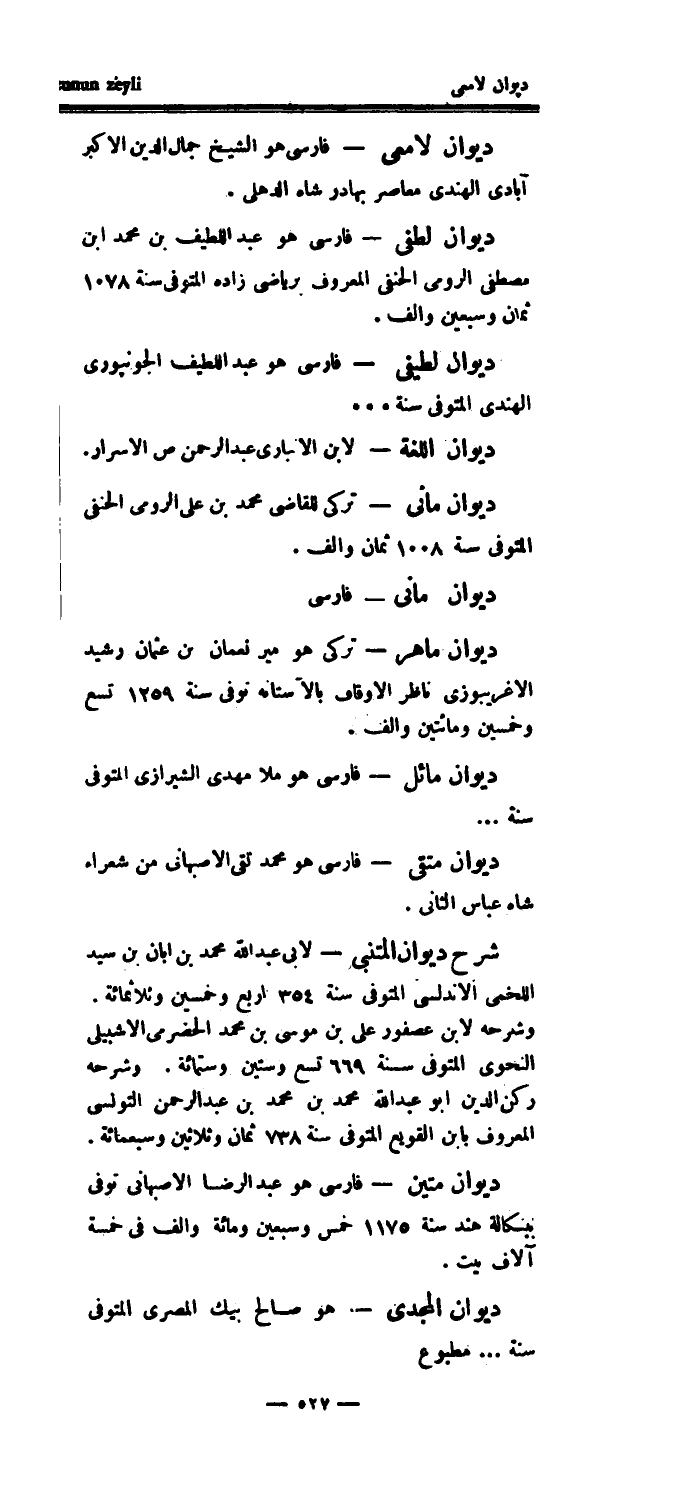 ديوان لامعى zeyli
ديوان لامعى — فارسى هو الشيخ جمال‌الدين الاكبر
آبادى الهندى معاصر بهادر شاه الدهلى .
ديوان لطفى — فارسى هو عبداللطيف بن محمد ابن
مصطفى الرومى الحنفى المعروف برياضى زاده المتوفى سنة ١٠٧٨
ثمان وسبعين والف .
ديوال لطيفى — فارسى هو عبداللطيف الجونپورى
الهندى المتوفى سنة ...
ديوان اللغة — لابن الانبارى عبدالرحمن ص الاسرار.
ديوان مانى — تركى للقاضى محمد بن على الرومى الحنفى
المتوفى سنة ١٠٠٨ ثمان والف .
ديوان مانى — فارسى
ديوان ماهر — تركى هو مير نعمان بن عثمان رشيد
الاغريبوزى ناظر الاوقاف بالآستانه توفى سنة ١٢٥٩ تسع
وخمسين ومائتين والف .
ديوان مائل — فارسى هو ملا مهدى الشيرازى المتوفى
سنة ...
ديوان متقى — فارسى هو محمد تقى الاصبهانى من شعراء
شاه عباس الثانى .
شرح ديوان المتنبى — لابى عبدالله محمد بن ابان بن سيد
اللخمى الاندلسى المتوفى سنة ٣٥٤ اربع وخمسين وثلاثمائة .
وشرحه لابن عصفور على بن موسى بن محمد الحضرمى الاشبيلى
النحوى المتوفى سنة ٦٦٩ تسع وستين وستمائة . وشرحه
ركن‌الدين ابو عبدالله محمد بن محمد بن عبدالرحمن التونسى
المعروف بابن القويع المتوفى سنة ٧٣٨ ثمان وثلاثين وسبعمائة .
ديوان متين — فارسى هو عبدالرضا الاصبهانى توفى
ببنكالة هند سنة ١١٧٥ خمس وسبعين ومائة والف فى خمسة
آلاف بيت .
ديوان المجدى — هو صالح بيك المصرى المتوفى
سنة ... مطبوع
— ٥٢٧ —